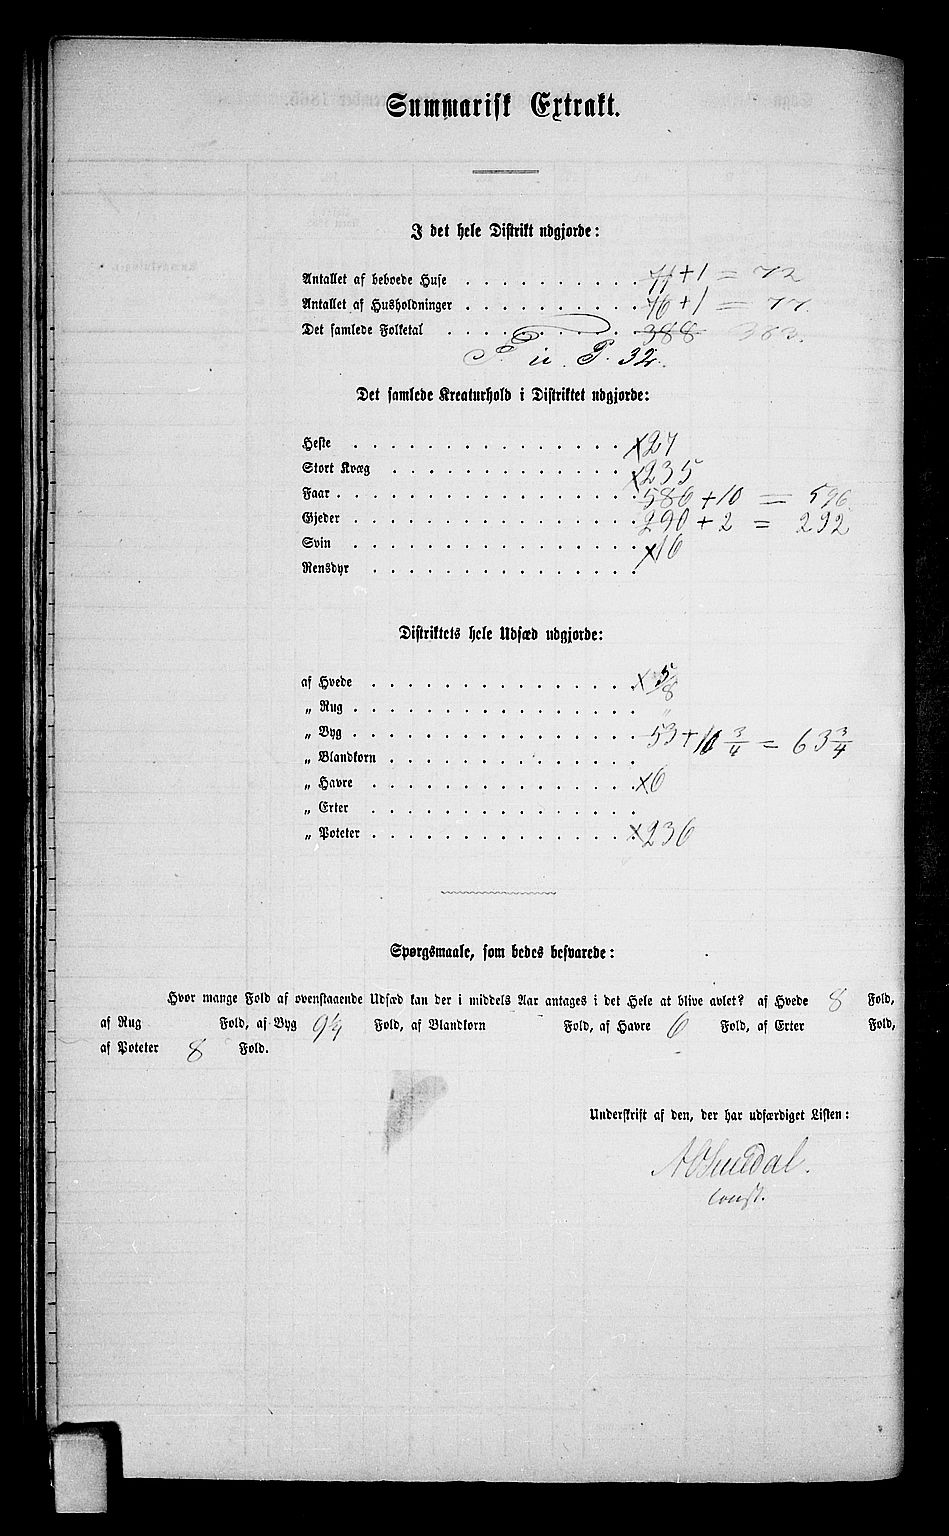 Summarisk Extrakt.
I det hele Distrikt udgjorde:
Antallet af beboede Huse . . . . . . . . . 71 + 1 = 72
Antallet af Husholdninger . . . . . . . . . 76 + 1 = 77.
Det samlede Folketal . . . . . . . . . 388 383.
P. 32.
Det samlede Kreaturhold i Distriktet udgjorde:
Heste . . . . . . . . . . . . . x 27
Stort Kvæg . . . . . . . . . . . . x 235
Faar . . . . . . . . . . . . . . 586 + 10 = 596.
Gjeder . . . . . . . . . . . . . 290 + 2 = 292
Svin . . . . . . . . . . . . . x 16
Rensdyr . . . . . . . . . . . . .
Distriktets hele Udsæd udgjorde:
af Hvede . . . . . . . . . . . . . x 5/8
„ Rug . . . . . . . . . . . . . . "
„ Byg . . . . . . . . . . . . . . 53 + 10 3/4 = 63 3/4
„ Blandkorn . . . . . . . . . . . .
„ Havre . . . . . . . . . . . . . x 6
„ Erter . . . . . . . . . . . . .
„ Poteter . . . . . . . . . . . . . x 236
Spørgsmaale, som bedes besvarede:
Hvor mange Fold af ovenstaaende Udsæd kan der i middels Aar antages i det Hele at blive avlet? af Hvede 8 Fold,
af Rug Fold, af Byg Fold, af Blandkorn Fold, af Havre 6 Fold, af Erter Fold,
af Poteter 8 Fold.
Underskrift af den, der har udfærdiget Listen:
const.